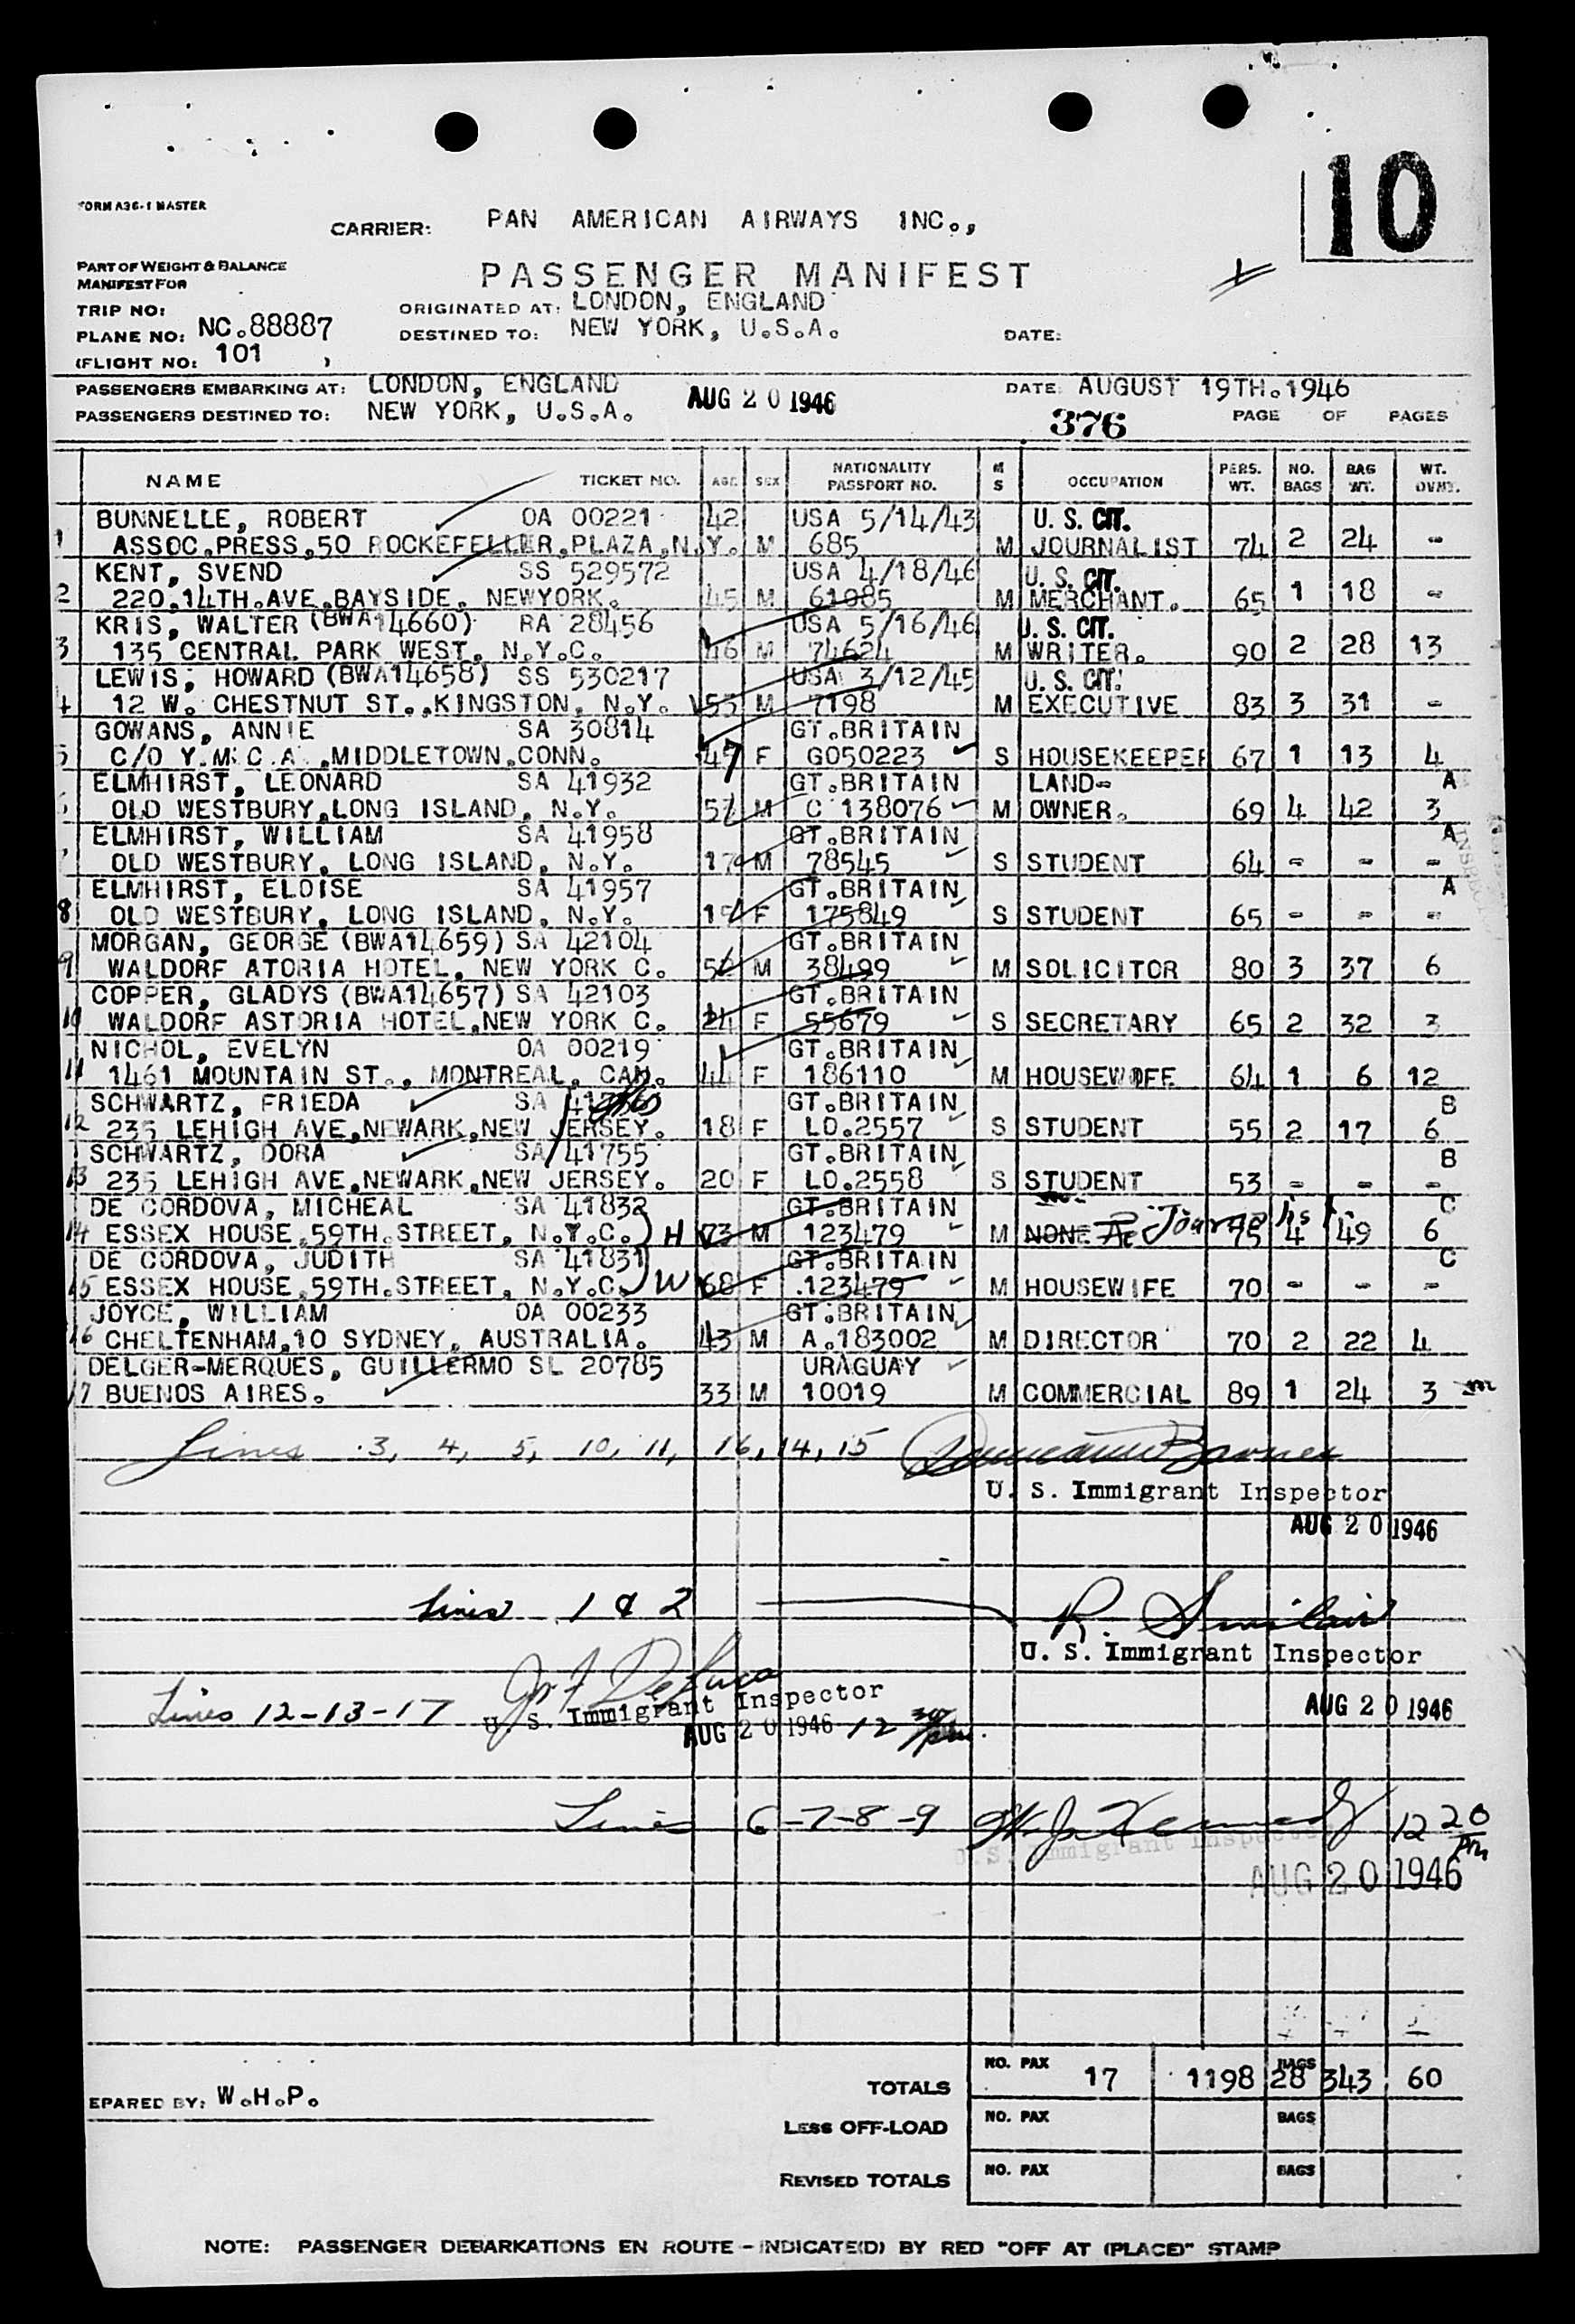 10
FORM A36-1 MASTER
CARRIER: PAN AMERICAN AIRWAYS INC.,
PART OF WEIGHT & BALANCE
MANIFEST FOR
PASSENGER MANIFEST
TRIP NO:
ORIGINATED AT: LONDON, ENGLAND
PLANE NO: NC.88887
DESTINED TO: NEW YORK, U.S.A.
DATE:
(FLIGHT NO: 101 )
PASSENGERS EMBARKING AT: LONDON, ENGLAND
AUG 20 1946
DATE: AUGUST 19TH.1946
PASSENGERS DESTINED TO: NEW YORK, U.S.A.
376 PAGE OF PAGES
NAME TICKET NO. AGE SEX NATIONALITY PASSPORT NO. M S OCCUPATION PERS. WT. NO. BAGS BAG WT. WT. OVHT.
BUNNELLE, ROBERT OA 00221 42 USA 5/14/43 U. S. CIT.
1 ASSOC.PRESS.50 ROCKEFELLER.PLAZA.N.Y. M 685 M JOURNALIST 74 2 24 -
KENT, SVEND SS 529572 USA 4/18/46 U. S. CIT.
2 220.14TH.AVE.BAYSIDE. NEWYORK. 45 M 61085 M MERCHANT. 65 1 18 -
KRIS, WALTER (BWA14660) RA 28456 USA 5/16/46 U. S. CIT.
3 135 CENTRAL PARK WEST. N.Y.C. 46 M 74624 M WRITER. 90 2 28 13
LEWIS, HOWARD (BWA14658) SS 530217 USA 3/12/45 U. S. CIT.
4 12 W. CHESTNUT ST..KINGSTON, N.Y. 53 M 7198 M EXECUTIVE 83 3 31 -
GOWANS, ANNIE SA 30814 GT.BRITAIN
5 C/O Y.M.C.A. .MIDDLETOWN.CONN. 47 F G050223 S HOUSEKEEPER 67 1 13 4
ELMHIRST, LEONARD SA 41932 GT.BRITAIN LAND- A
6 OLD WESTBURY,LONG ISLAND, N.Y. M C 138076 M OWNER. 69 4 42 3
ELMHIRST, WILLIAM SA 41958 GT.BRITAIN A
7 OLD WESTBURY, LONG ISLAND, N.Y. 17 M 78545 S STUDENT 64 - - -
ELMHIRST, ELOISE SA 41957 GT.BRITAIN A
8 OLD WESTBURY, LONG ISLAND, N.Y. F 175849 S STUDENT 65 - - -
MORGAN, GEORGE (BWA14659) SA 42104 GT.BRITAIN
9 WALDORF ATORIA HOTEL, NEW YORK C. M 38499 M SOLICITOR 80 3 37 6
COPPER, GLADYS (BWA14657) SA 42103 GT.BRITAIN
10 WALDORF ASTORIA HOTEL,NEW YORK C. 24 F 55679 S SECRETARY 65 2 32 3
NICHOL, EVELYN OA 00219 GT.BRITAIN
11 1461 MOUNTAIN ST., MONTREAL, CAN. 44 F 186110 M HOUSEWIFE 64 1 6 12
SCHWARTZ, FRIEDA SA GT.BRITAIN B
12 235 LEHIGH AVE.NEWARK.NEW JERSEY. 18 F LO.2557 S STUDENT 55 2 17 6
SCHWARTZ, DORA SA 41755 GT.BRITAIN B
13 235 LEHIGH AVE.NEWARK.NEW JERSEY. 20 F LO.2558 S STUDENT 53 - - -
DE CORDOVA, MICHEAL SA 41832 GT.BRITAIN C
14 ESSEX HOUSE.59TH.STREET, N.Y.C. H 73 M 123479 M NONE 75 4 49 6
DE CORDOVA, JUDITH SA 41831 GT.BRITAIN C
15 ESSEX HOUSE.59TH.STREET, N.Y.C. W 68 F .123479 M HOUSEWIFE 70 - - -
JOYCE, WILLIAM OA 00233 GT.BRITAIN
16 CHELTENHAM.10 SYDNEY, AUSTRALIA. 43 M A.183002 M DIRECTOR 70 2 22 4
DELGER-MERQUES, GUILLERMO SL 20785 URAGUAY
17 BUENOS AIRES. 33 M 10019 M COMMERCIAL 89 1 24 3
Lines 3, 4, 5, 10, 11, 16, 14, 15
U. S. Immigrant Inspector
AUG 20 1946
Lines 1 & 2 R. Sinclair
U. S. Immigrant Inspector
AUG 20 1946
Lines 12-13-17
U. S. Immigrant Inspector
AUG 20 1946 12 30 pm.
Lines 6-7-8-9 W. J. Kennedy 12 20 pm
U. S. Immigrant Inspector
AUG 20 1946
TOTALS NO. PAX 17 1198 BAGS 28 343 60
EPARED BY: W.H.P.
LESS OFF-LOAD NO. PAX BAGS
REVISED TOTALS NO. PAX BAGS
NOTE: PASSENGER DEBARKATIONS EN ROUTE - INDICATE(D) BY RED "OFF AT (PLACE)" STAMP